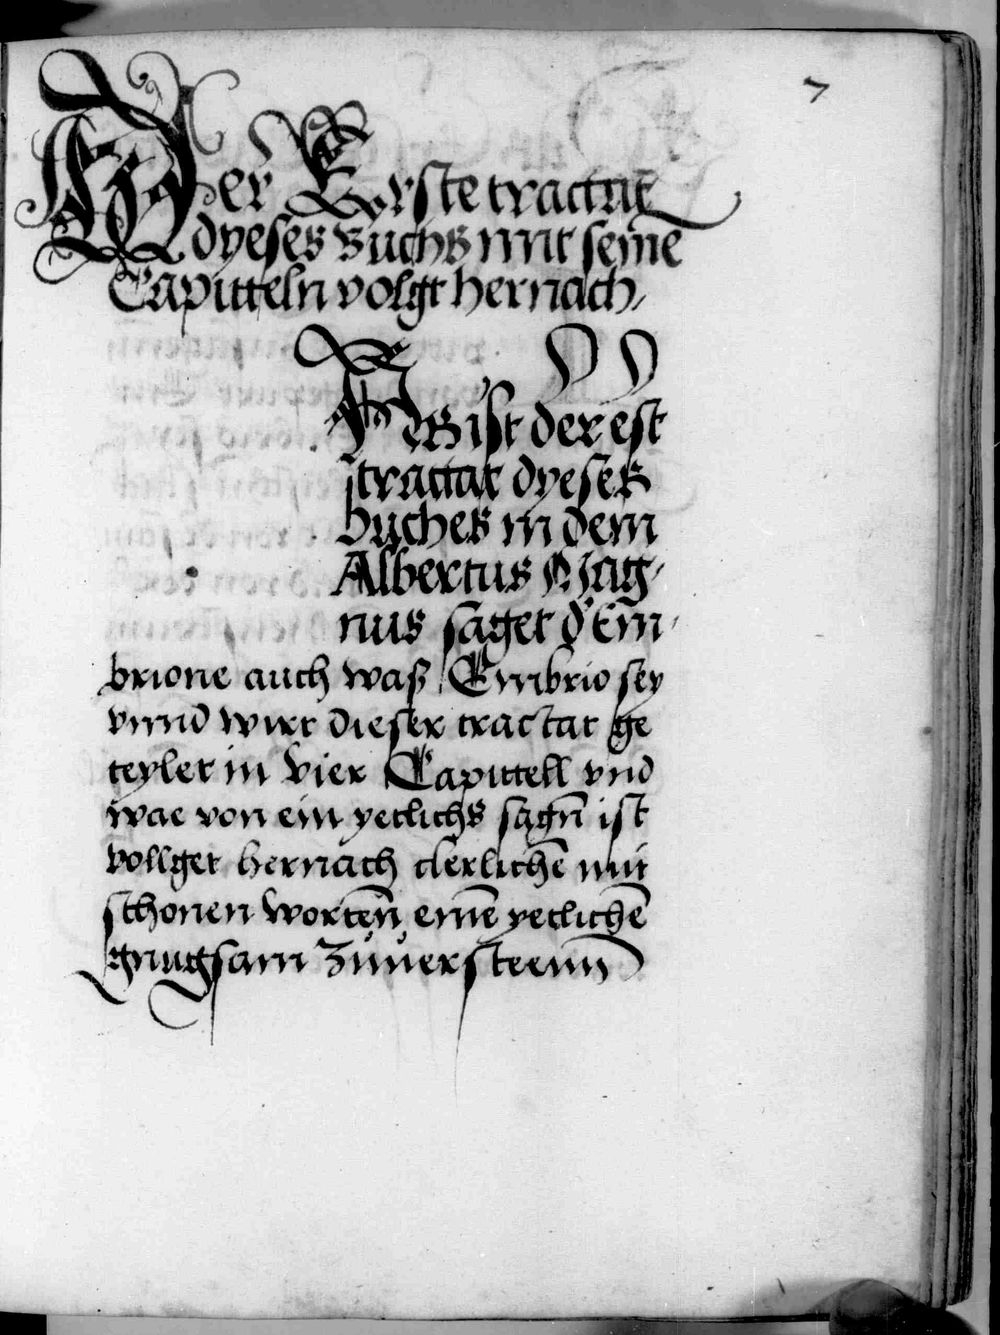 7
Der Erste tractat
dyeses Buchs mit seine
Capitteln volgt hernach,
DAs ist der est
tractat dyeses
buches in dem
Albertus Mag,
nus saget d' Em,
brione auch waß Embrio sey
vnnd wirt dieser tractat ge
teylet in Vier Capittell vnd
wae von ein yetlichs sagn̄ ist
vollget hernach clerlichē mit
schonen wortēn einē yetlichē
gnugsam zuuersteenn